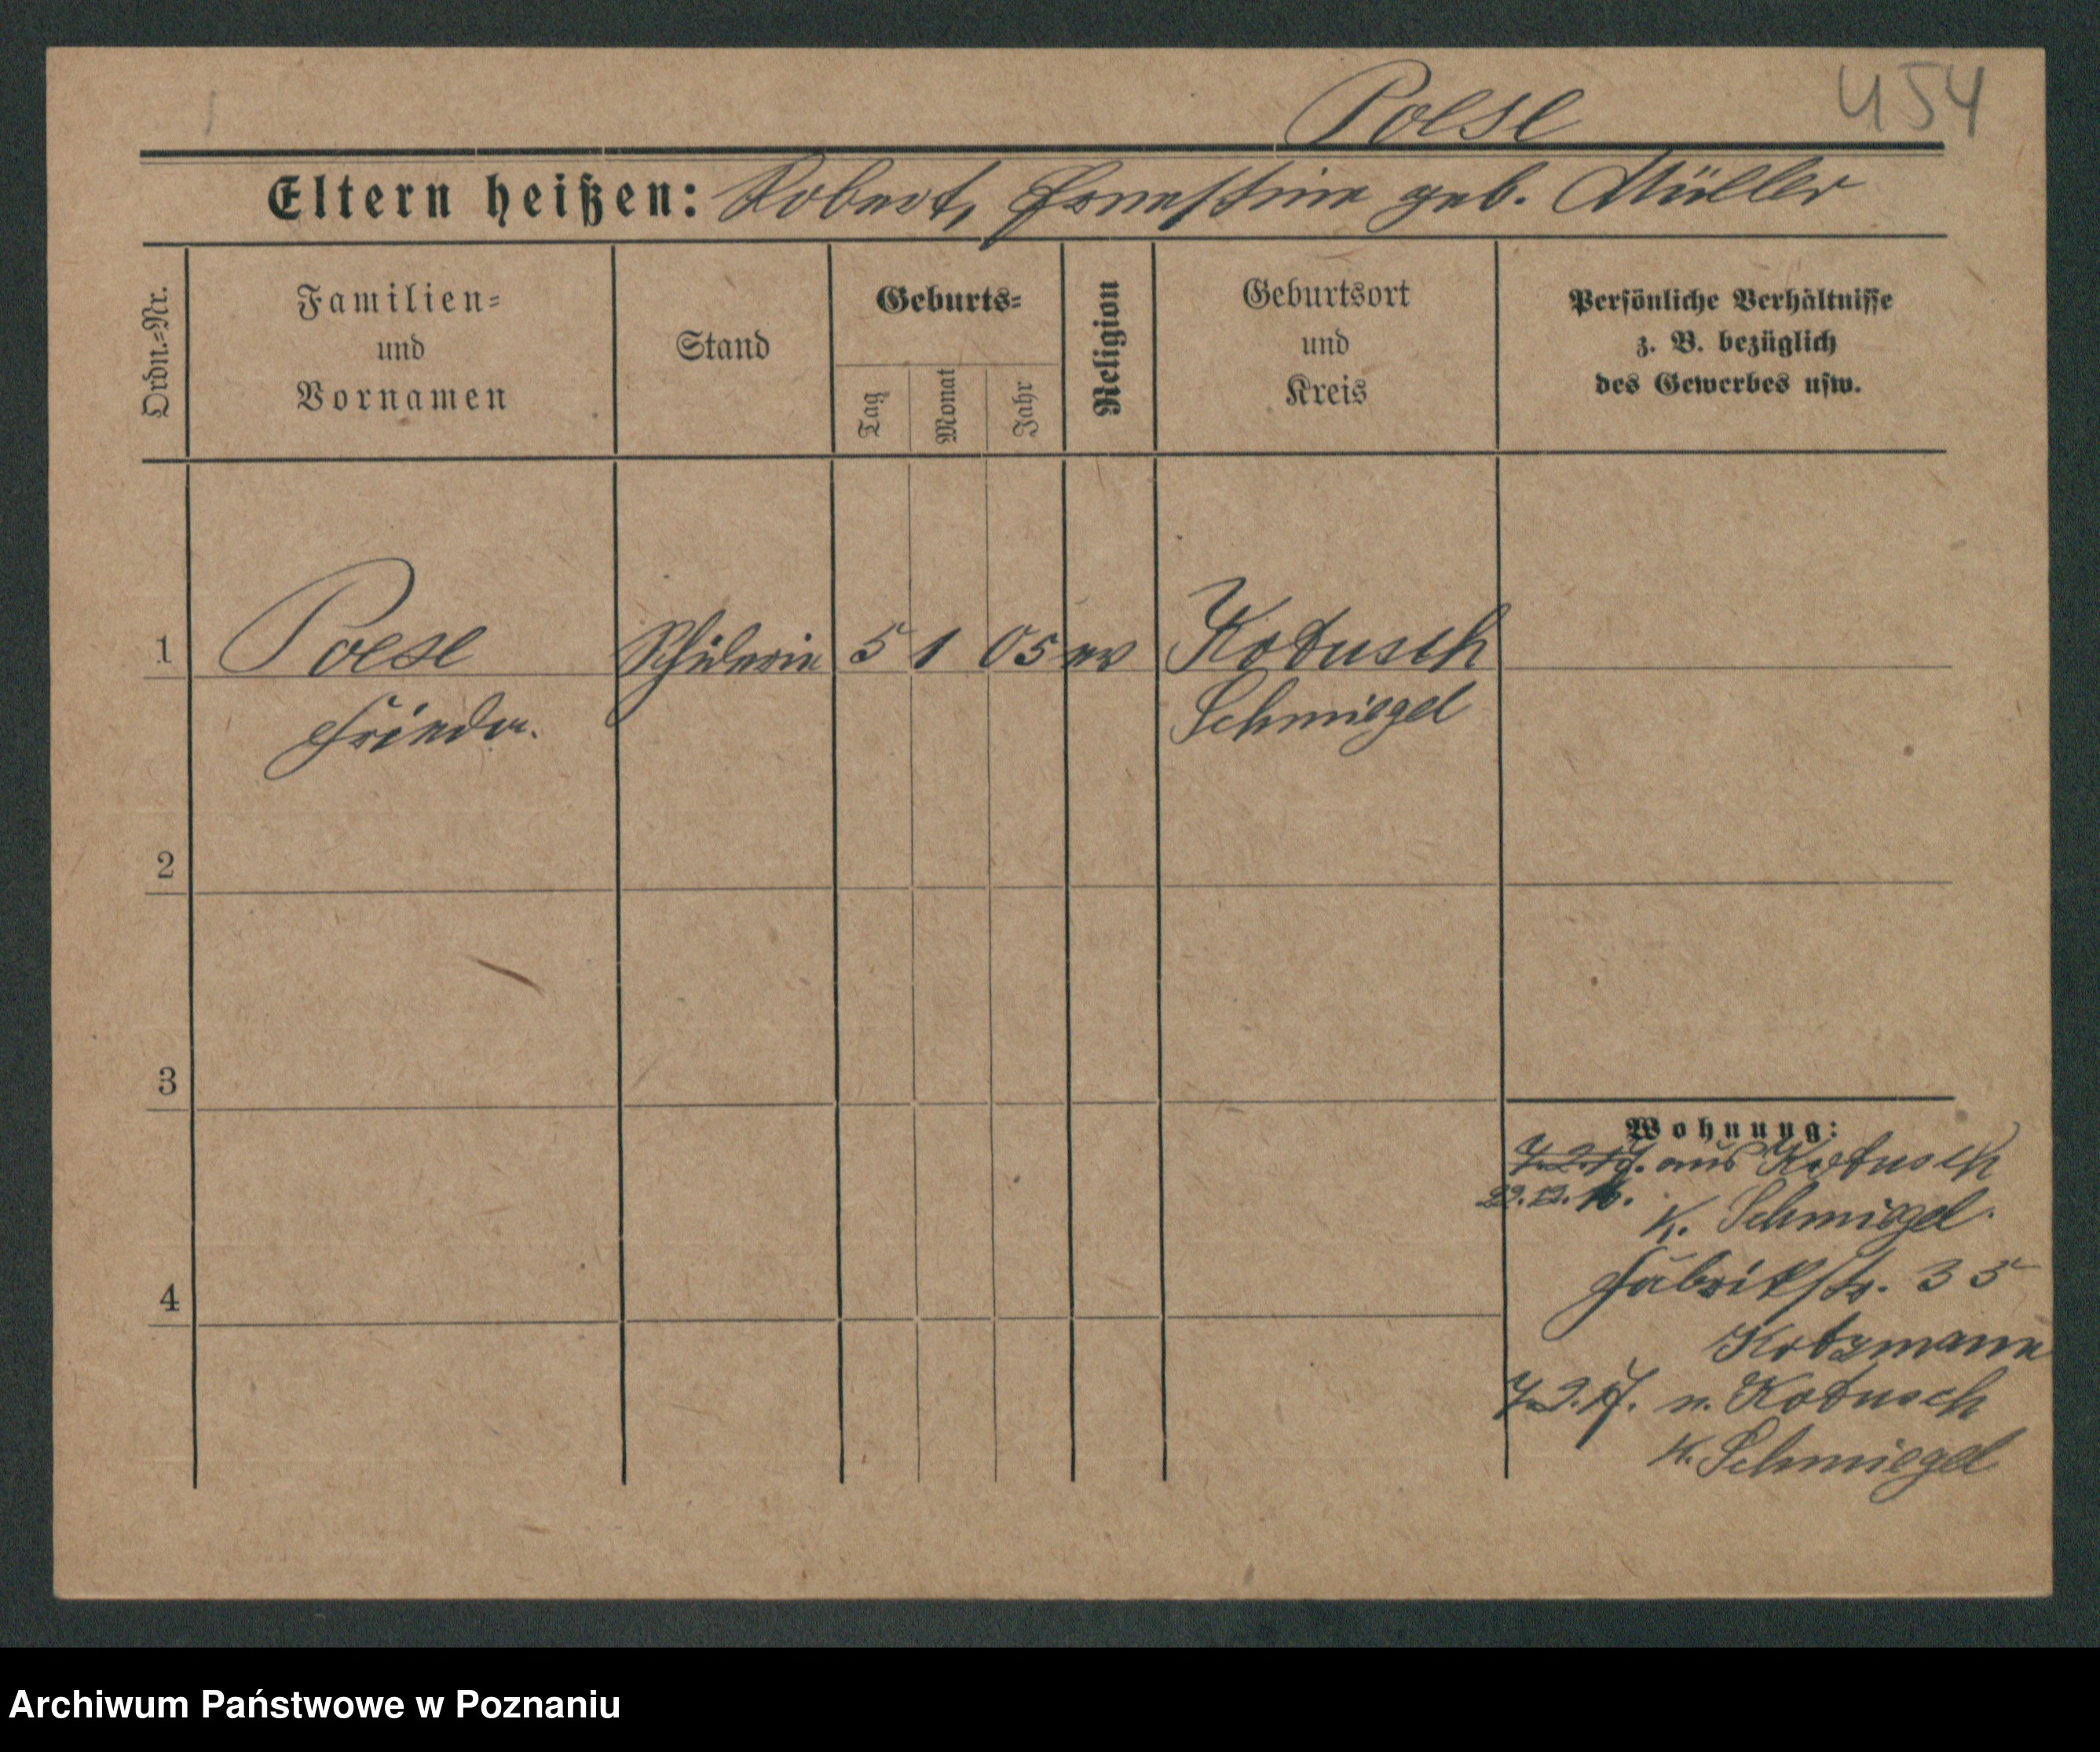 Poese 454
Eltern heißen: Robert, Ernestine geb. Müller
Ordn.=Nr.
Familien=
und
Vornamen
Stand
Geburts=
Tag
Monat
Jahr
Religion
Geburtsort
und
Kreis
Persönliche Verhältnisse
z. B. bezüglich
des Gewerbes usw.
1 Poese Schülerin 5 1 05 ev Kotusch
Frieda. Schmiegel
2
3
4
Wohnung:
7.2.17. aus Kotusch
29.12.16.
K. Schmiegel.
Fabrikstr. 35
Kotzmann
7.2.17. n. Kotusch
K. Schmiegel
Archiwum Państwowe w Poznaniu